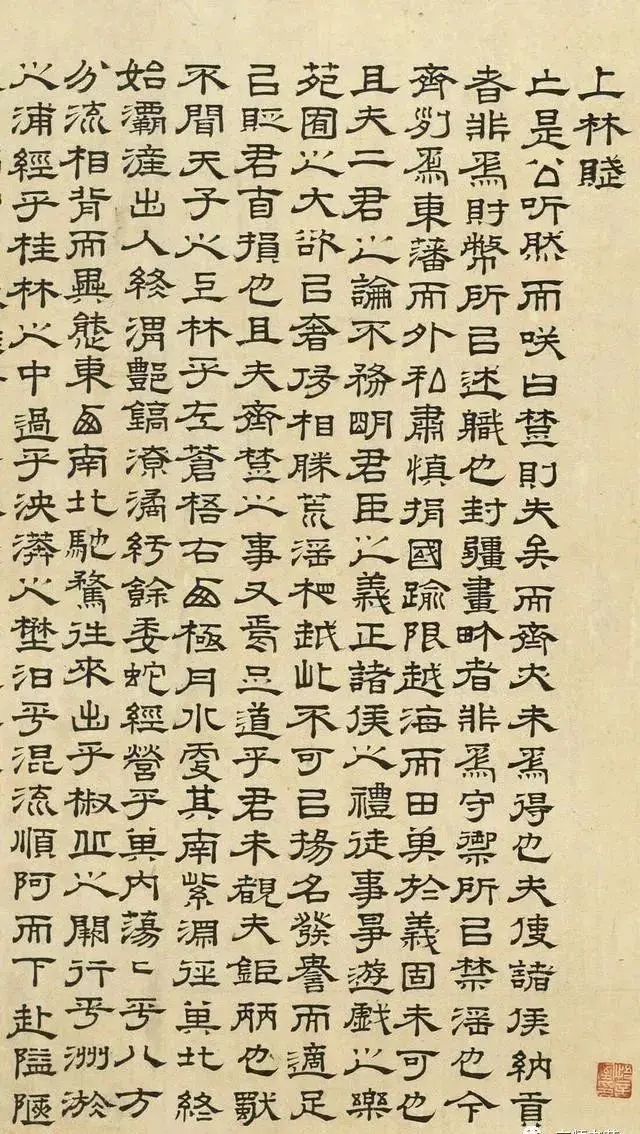 上林賦
亡是公听然而咲曰楚則失矣而齊亦未爲得也夫使諸侯納貢
者非爲財幣所㠯述職也封疆畫畍者非爲守禦所㠯禁淫也今
齊列爲東藩而外私肅慎捐國踰限越海而田其於義固未可也
且夫二君之論不務明君臣之義正諸侯之禮徒事爭遊戲之樂
苑囿之大欲㠯奢侈相勝荒淫相越此不可㠯揚名發譽而適足
㠯貶君自損也且夫齊楚之事又焉足道乎君未覩夫鉅麗也獸
不聞天子之上林乎左蒼梧右西極丹水更其南紫淵徑其北終
始灞滻出入終渭酆鎬潦潏紆餘委蛇經營乎其内蕩〻乎八方
分流相背而異態東西南北馳騖往來出乎椒丘之闕行乎洲淤
之浦經乎桂林之中過乎泱漭之壄汩乎混流順阿而下赴隘陿